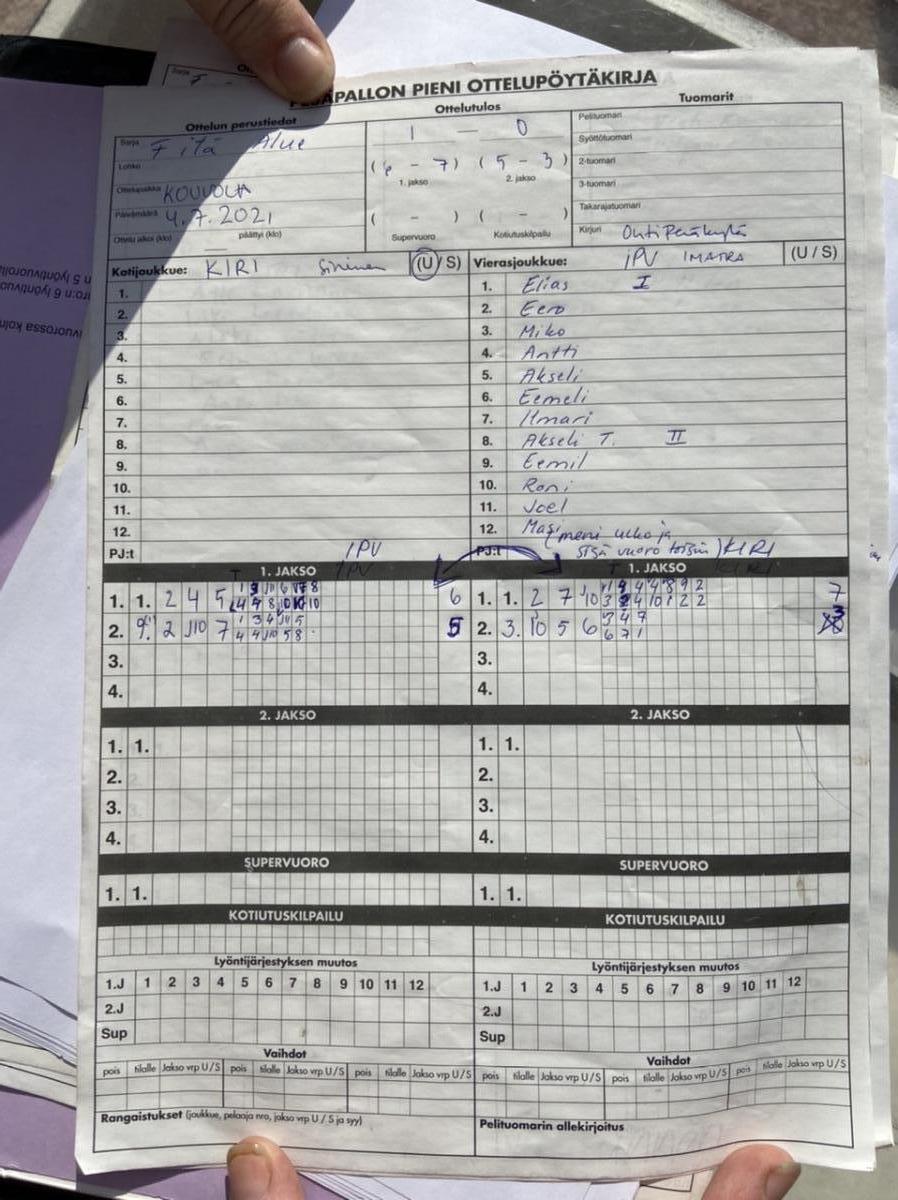 PESÄPALLON PIENI OTTELUPÖYTÄKIRJA
Ottelun perustiedot
Ottelutulos
Tuomarit
Sarja F itä Alue
Lohko
Ottelupaikka KOUVOLA
Päivämäärä 4.7.2021
Ottelu alkoi (klo) päättyi (klo)
1 — 0
( 6 - 7 ) ( 5 - 3 )
1. jakso 2. jakso
( - ) ( - )
Supervuoro Kotiutuskilpailu
Pelituomari
Syöttötuomari
2-tuomari
3-tuomari
Takarajatuomari
Kirjuri Outi Peräkylä
Kotijoukkue: KIRI Sininen (U/S)
1.
2.
3.
4.
5.
6.
7.
8.
9.
10.
11.
12.
PJ:t IPV
Vierasjoukkue: iPV IMATRA (U/S)
1. Elias I
2. Eero
3. Miko
4. Antti
5. Akseli
6. Eemeli
7. Ilmari
8. Akseli T. II
9. Eemil
10. Roni
11. Joel
12. (meni ulko ja
PJ:t sisä vuoro toisin) KIRI
1. JAKSO
1. 1. 2 4 5 6
2. 9. 2 J10 7 5
3.
4.
1. JAKSO
1. 1. 2 7 10 7
2. 3. 10 5 6 3
3.
4.
2. JAKSO
1. 1.
2.
3.
4.
2. JAKSO
1. 1.
2.
3.
4.
SUPERVUORO
1. 1.
SUPERVUORO
1. 1.
KOTIUTUSKILPAILU
KOTIUTUSKILPAILU
Lyöntijärjestyksen muutos
1.J 1 2 3 4 5 6 7 8 9 10 11 12
2.J
Sup
Lyöntijärjestyksen muutos
1.J 1 2 3 4 5 6 7 8 9 10 11 12
2.J
Sup
Vaihdot
pois tilalle Jakso vrp U/S pois tilalle Jakso vrp U/S pois tilalle Jakso vrp U/S
Vaihdot
pois tilalle Jakso vrp U/S pois tilalle Jakso vrp U/S pois tilalle Jakso vrp U/S
Rangaistukset (joukkue, pelaaja nro, jakso vrp U / S ja syy)
Pelituomarin allekirjoitus